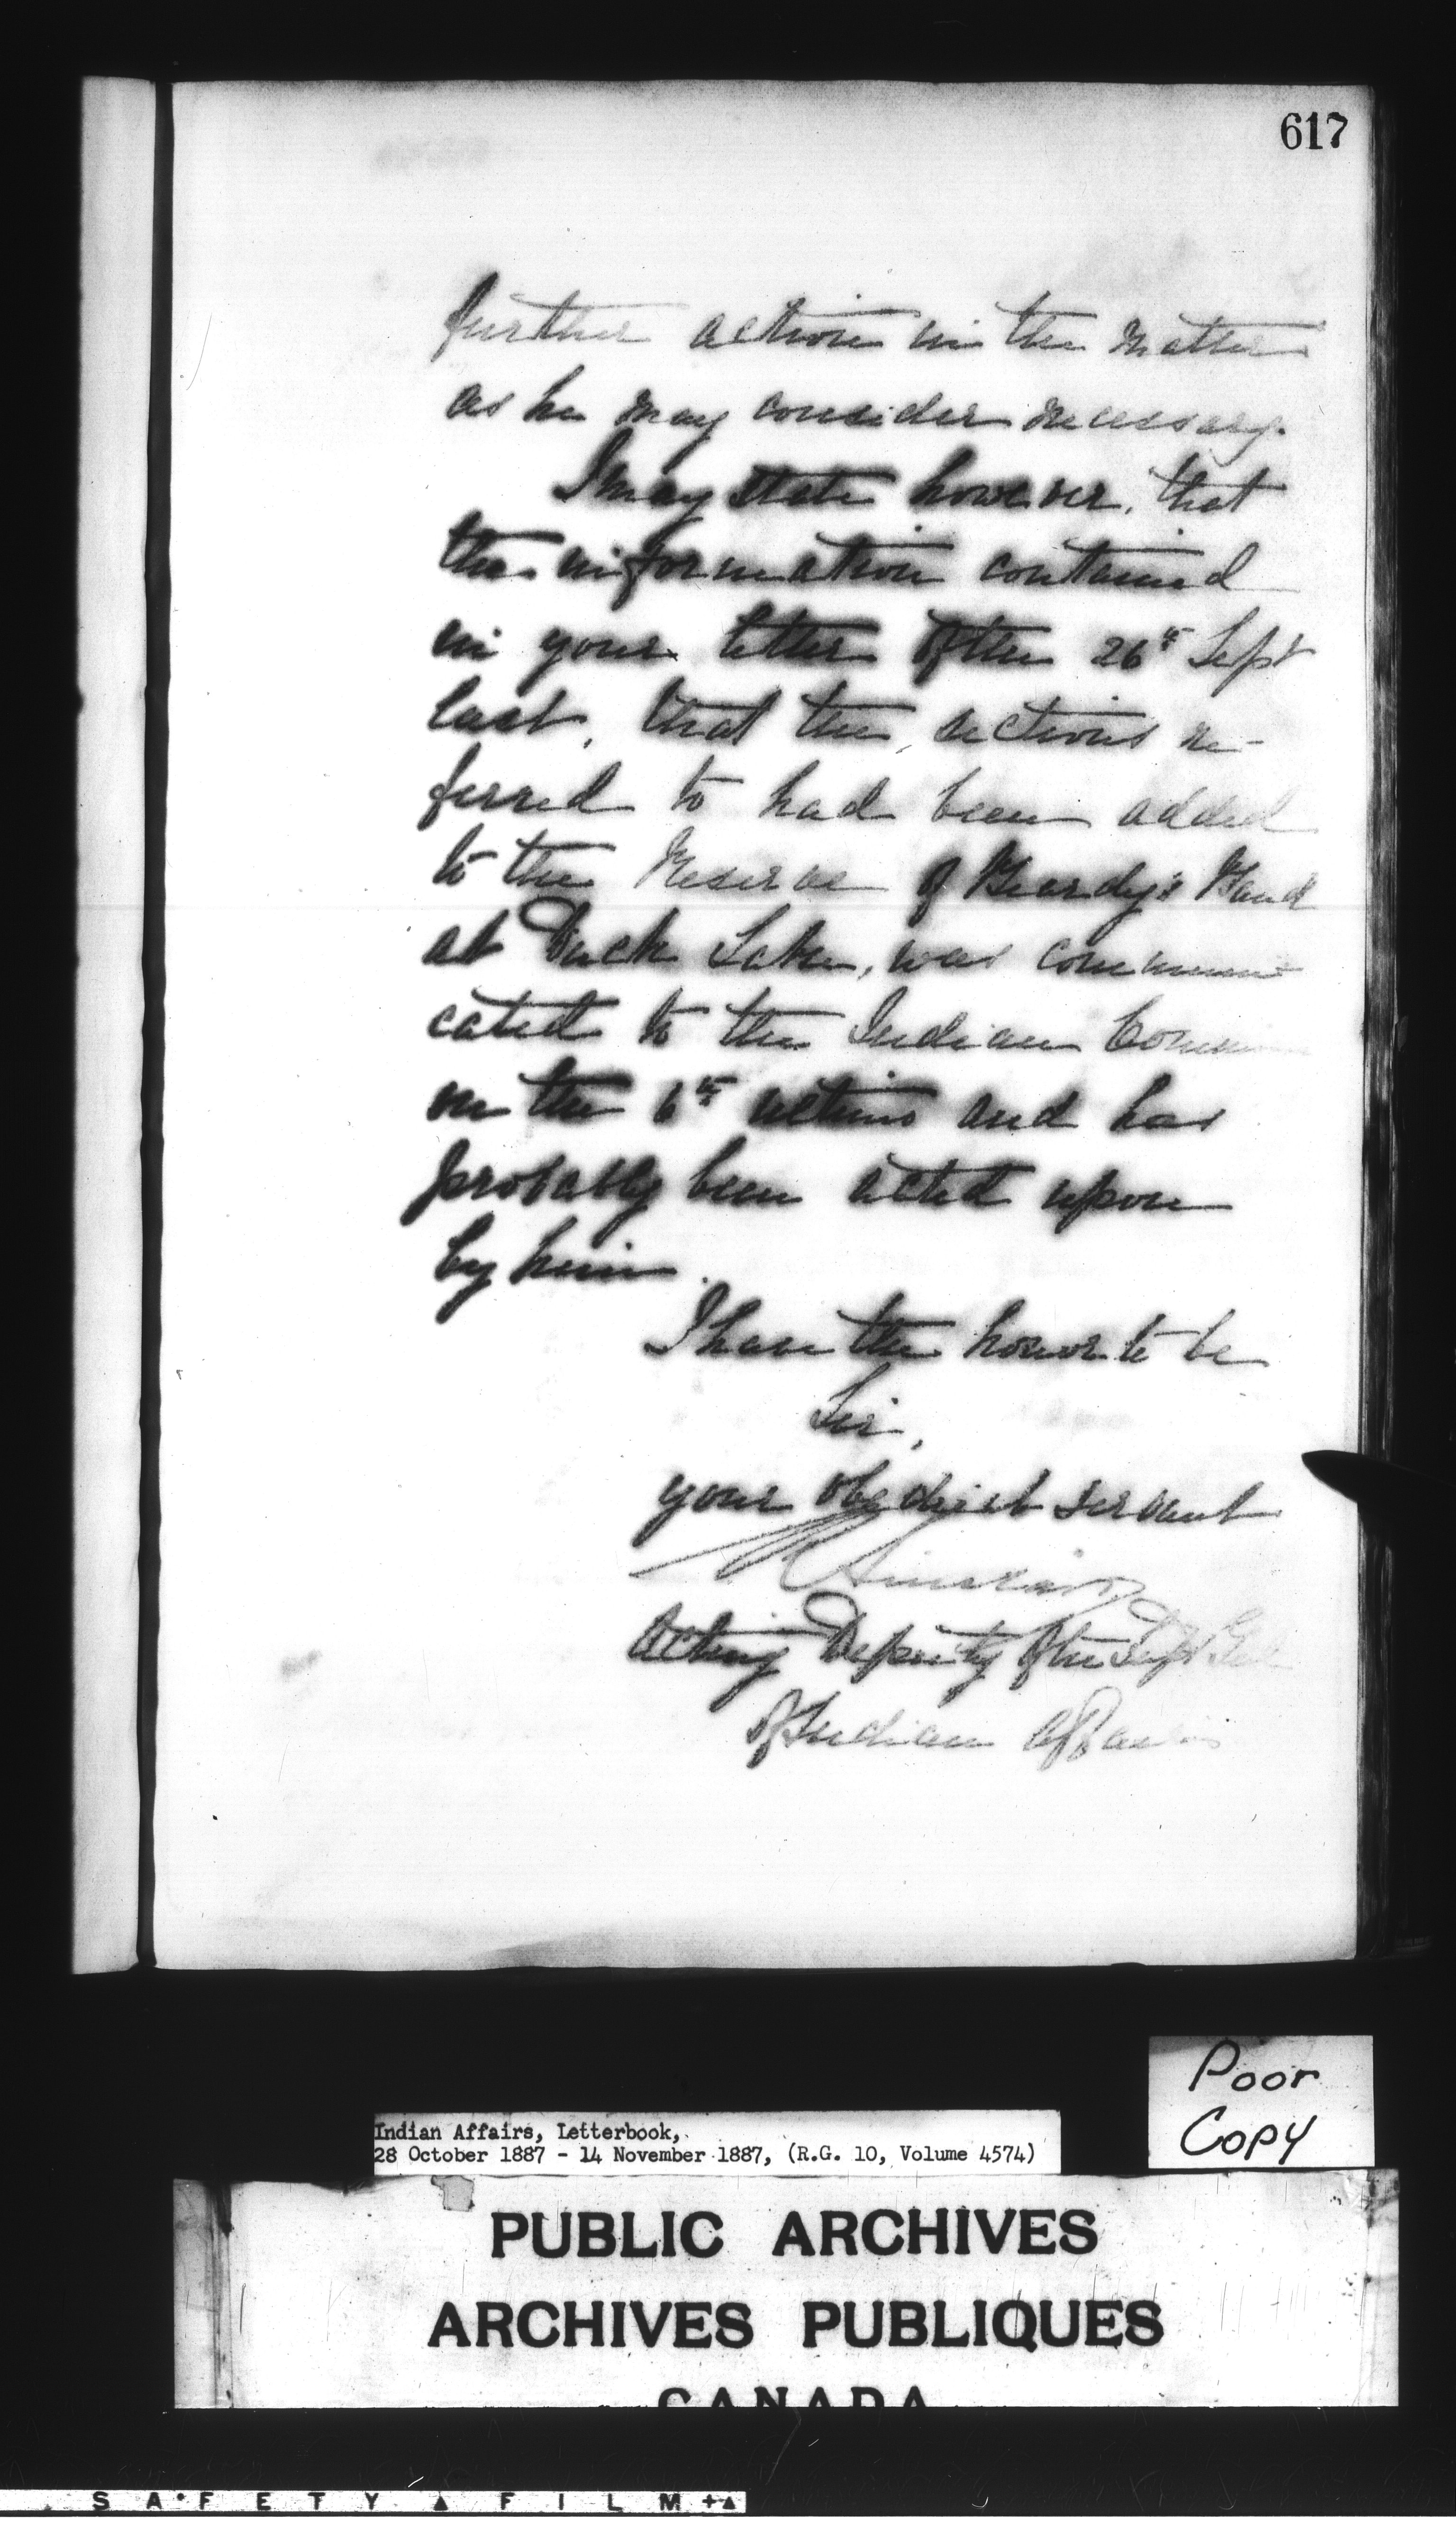 617
further action in the matter
as he may consider necessary.
I may state however, that
the information contained
in your letter of the 26th Sept
last, that the sections re-
ferred to had been added
to the Reserve of Beardy's Band
at Duck Lake, was communi
cated to the Indian Comm
on the 6th ultimo and has
probably been acted upon
by him.
I have the honor to be
Sir,
your obedient servant
R Sinclair
Acting Deputy of the Supt Genl
of Indian Affairs
Poor
Copy
Indian Affairs, Letterbook,
28 October 1887 - 14 November 1887, (R.G. 10, Volume 4574)
PUBLIC ARCHIVES
ARCHIVES PUBLIQUES
CANADA
SAFETY FILM